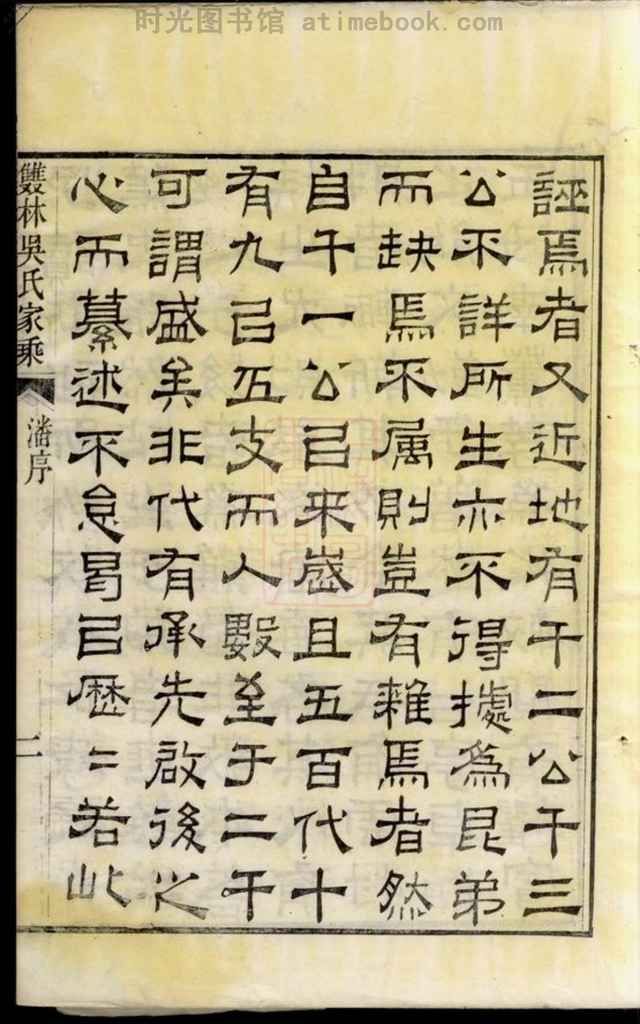 时光图书馆 atimebook.com
誣焉者又近地有千二公千三
公不詳所生亦不得據為昆弟
而缺焉不属則豈有雜焉者然
自千一公㠯来歲且五百代十
有九㠯五支而人數至于二千
可謂盛矣非代有承先啟後之
心而纂述不怠曷㠯歷二若此
雙林吳氏家乘
潘序
二